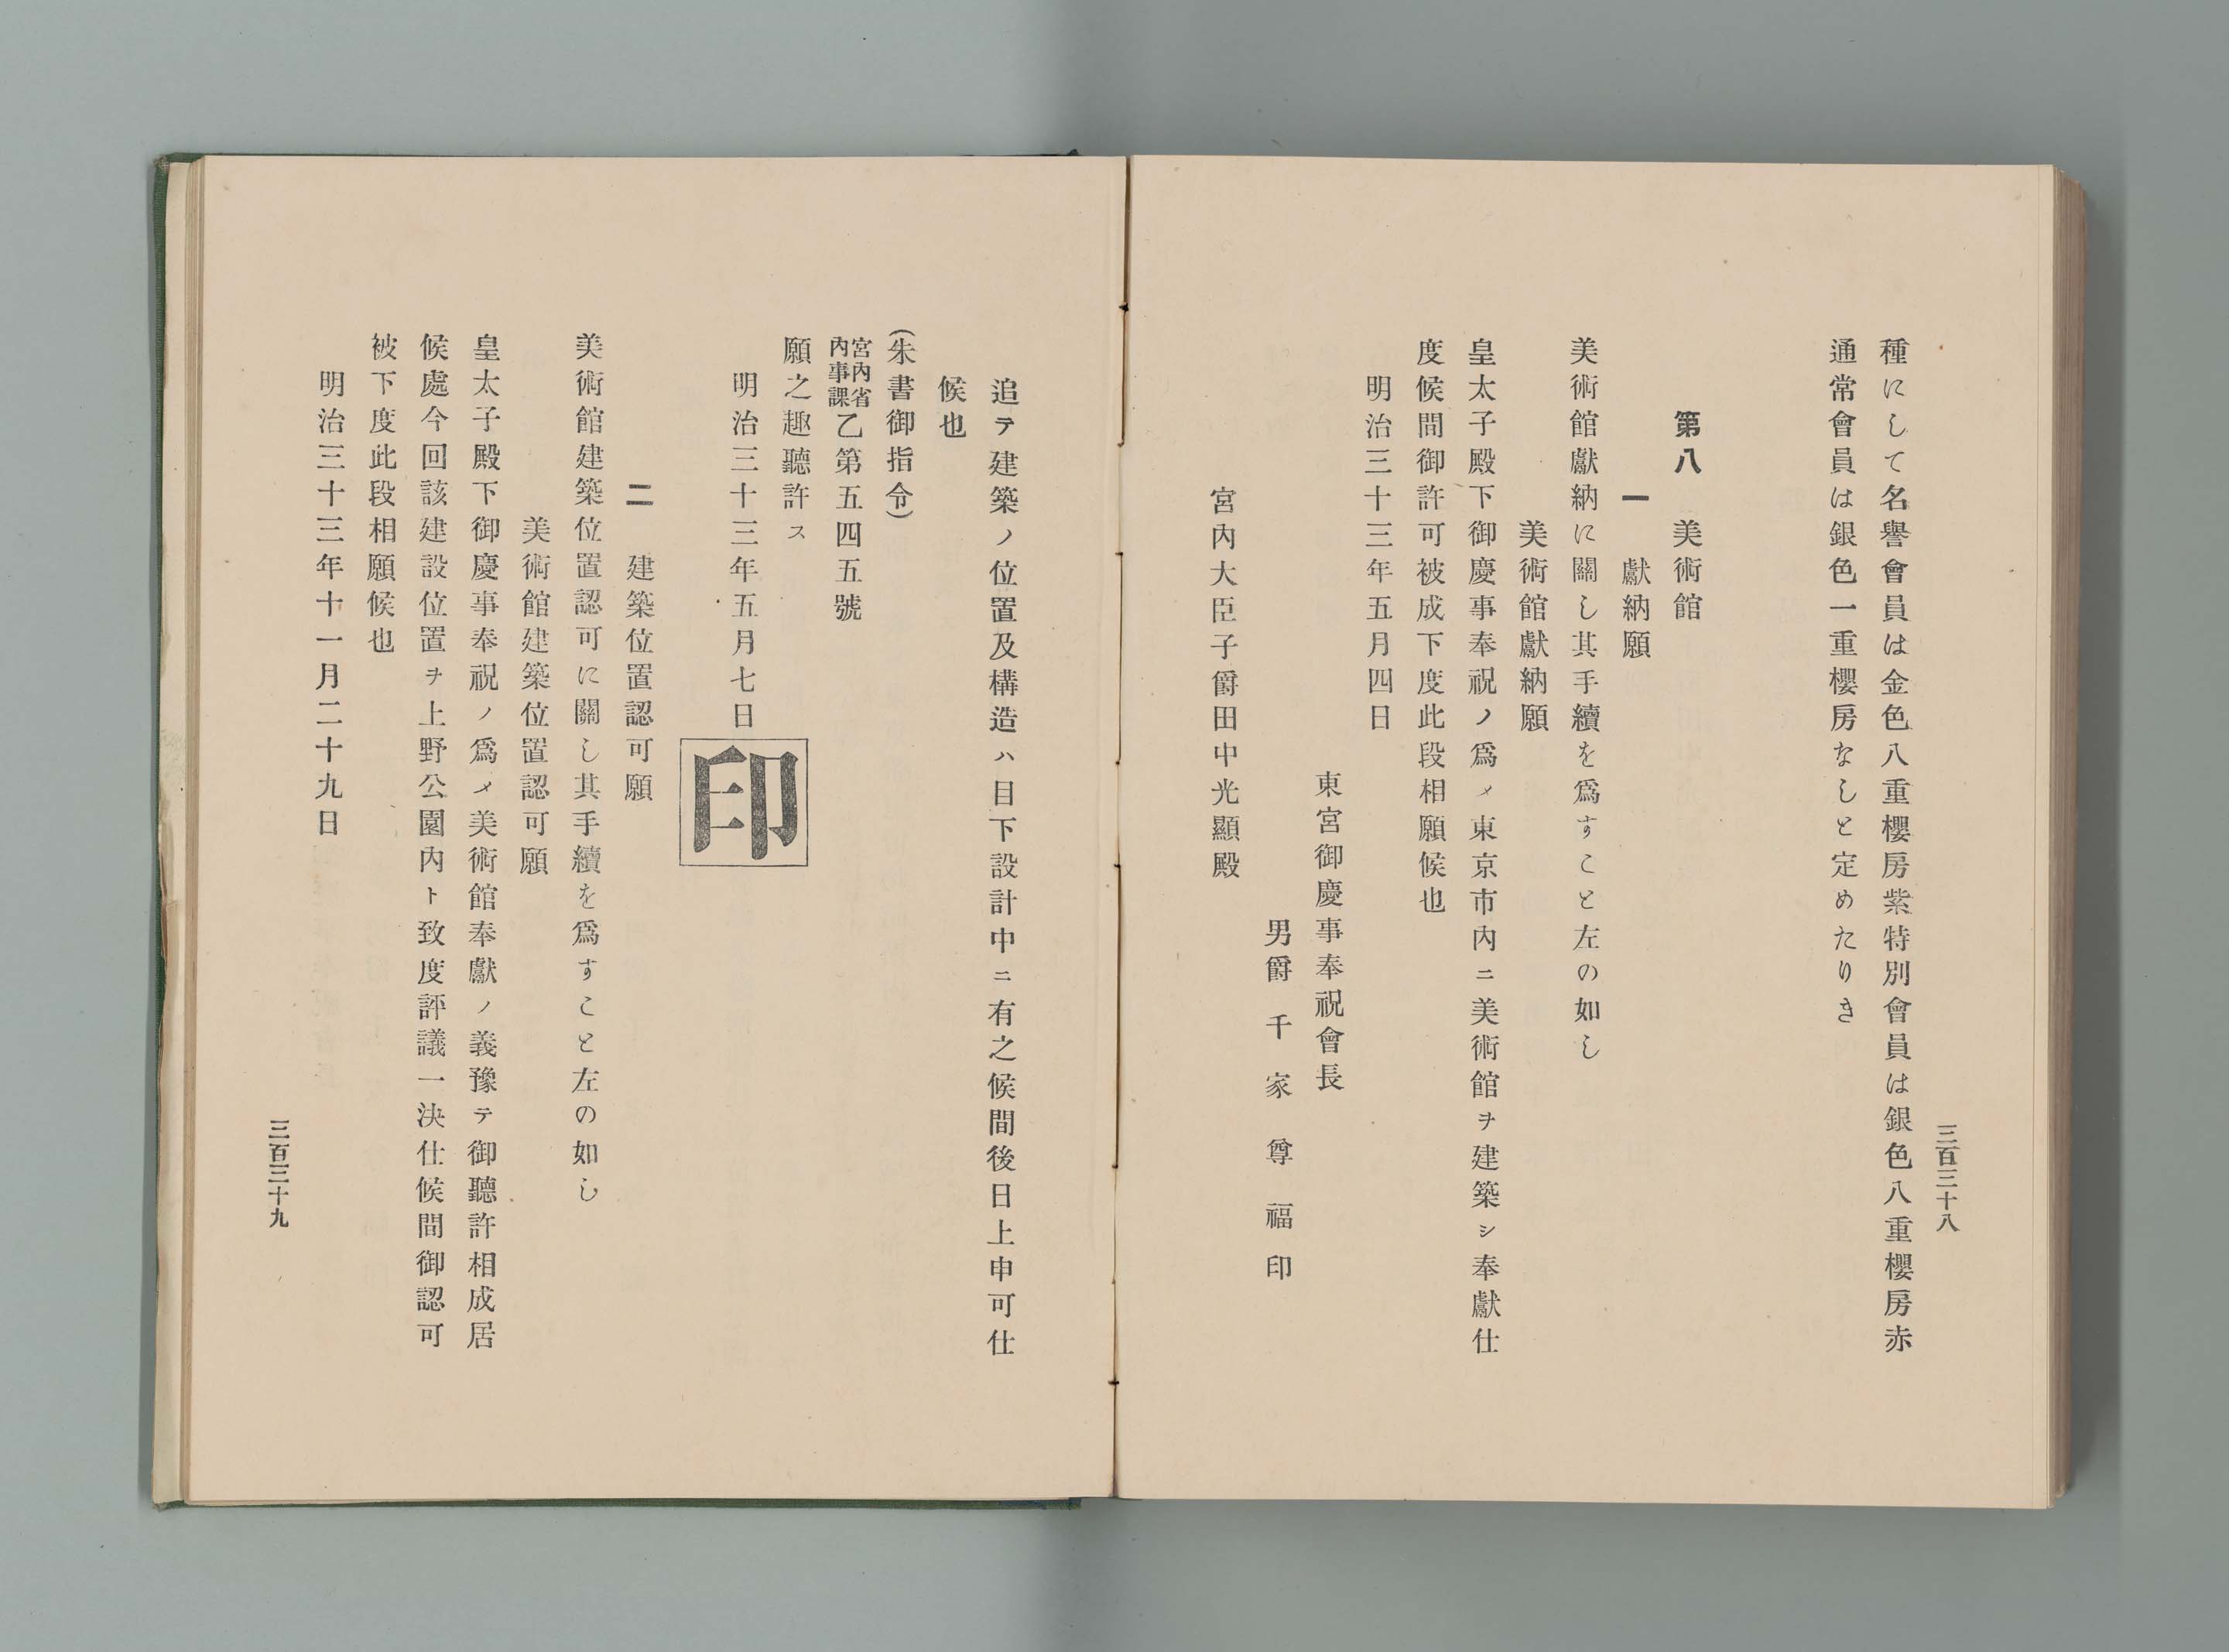 三百三十八
種にして名譽會員は金色八重櫻房紫特別會員は銀色八重櫻房赤
通常會員は銀色一重櫻房なしと定めたりき
第八　美術館
一　獻納願
美術館獻納に關し其手續を爲すこと左の如し
美術館獻納願
皇太子殿下御慶事奉祝ノ爲メ東京市內ニ美術館ヲ建築シ奉獻仕
度候間御許可被成下度此段相願候也
明治三十三年五月四日
東宮御慶事奉祝會長
男爵　千家尊福印
宮內大臣子爵田中光顯殿
追テ建築ノ位置及構造ハ目下設計中ニ有之候間後日上申可仕
候也
(朱書御指令)
宮內省
內事課
乙第五四五號
願之趣聽許ス
明治三十三年五月七日
印
二　建築位置認可願
美術館建築位置認可に關し其手續を爲すこと左の如し
美術館建築位置認可願
皇太子殿下御慶事奉祝ノ爲メ美術館奉獻ノ義豫テ御聽許相成居
候處今回該建設位置ヲ上野公園內ト致度評議一決仕候間御認可
被下度此段相願候也
明治三十三年十一月二十九日
三百三十九